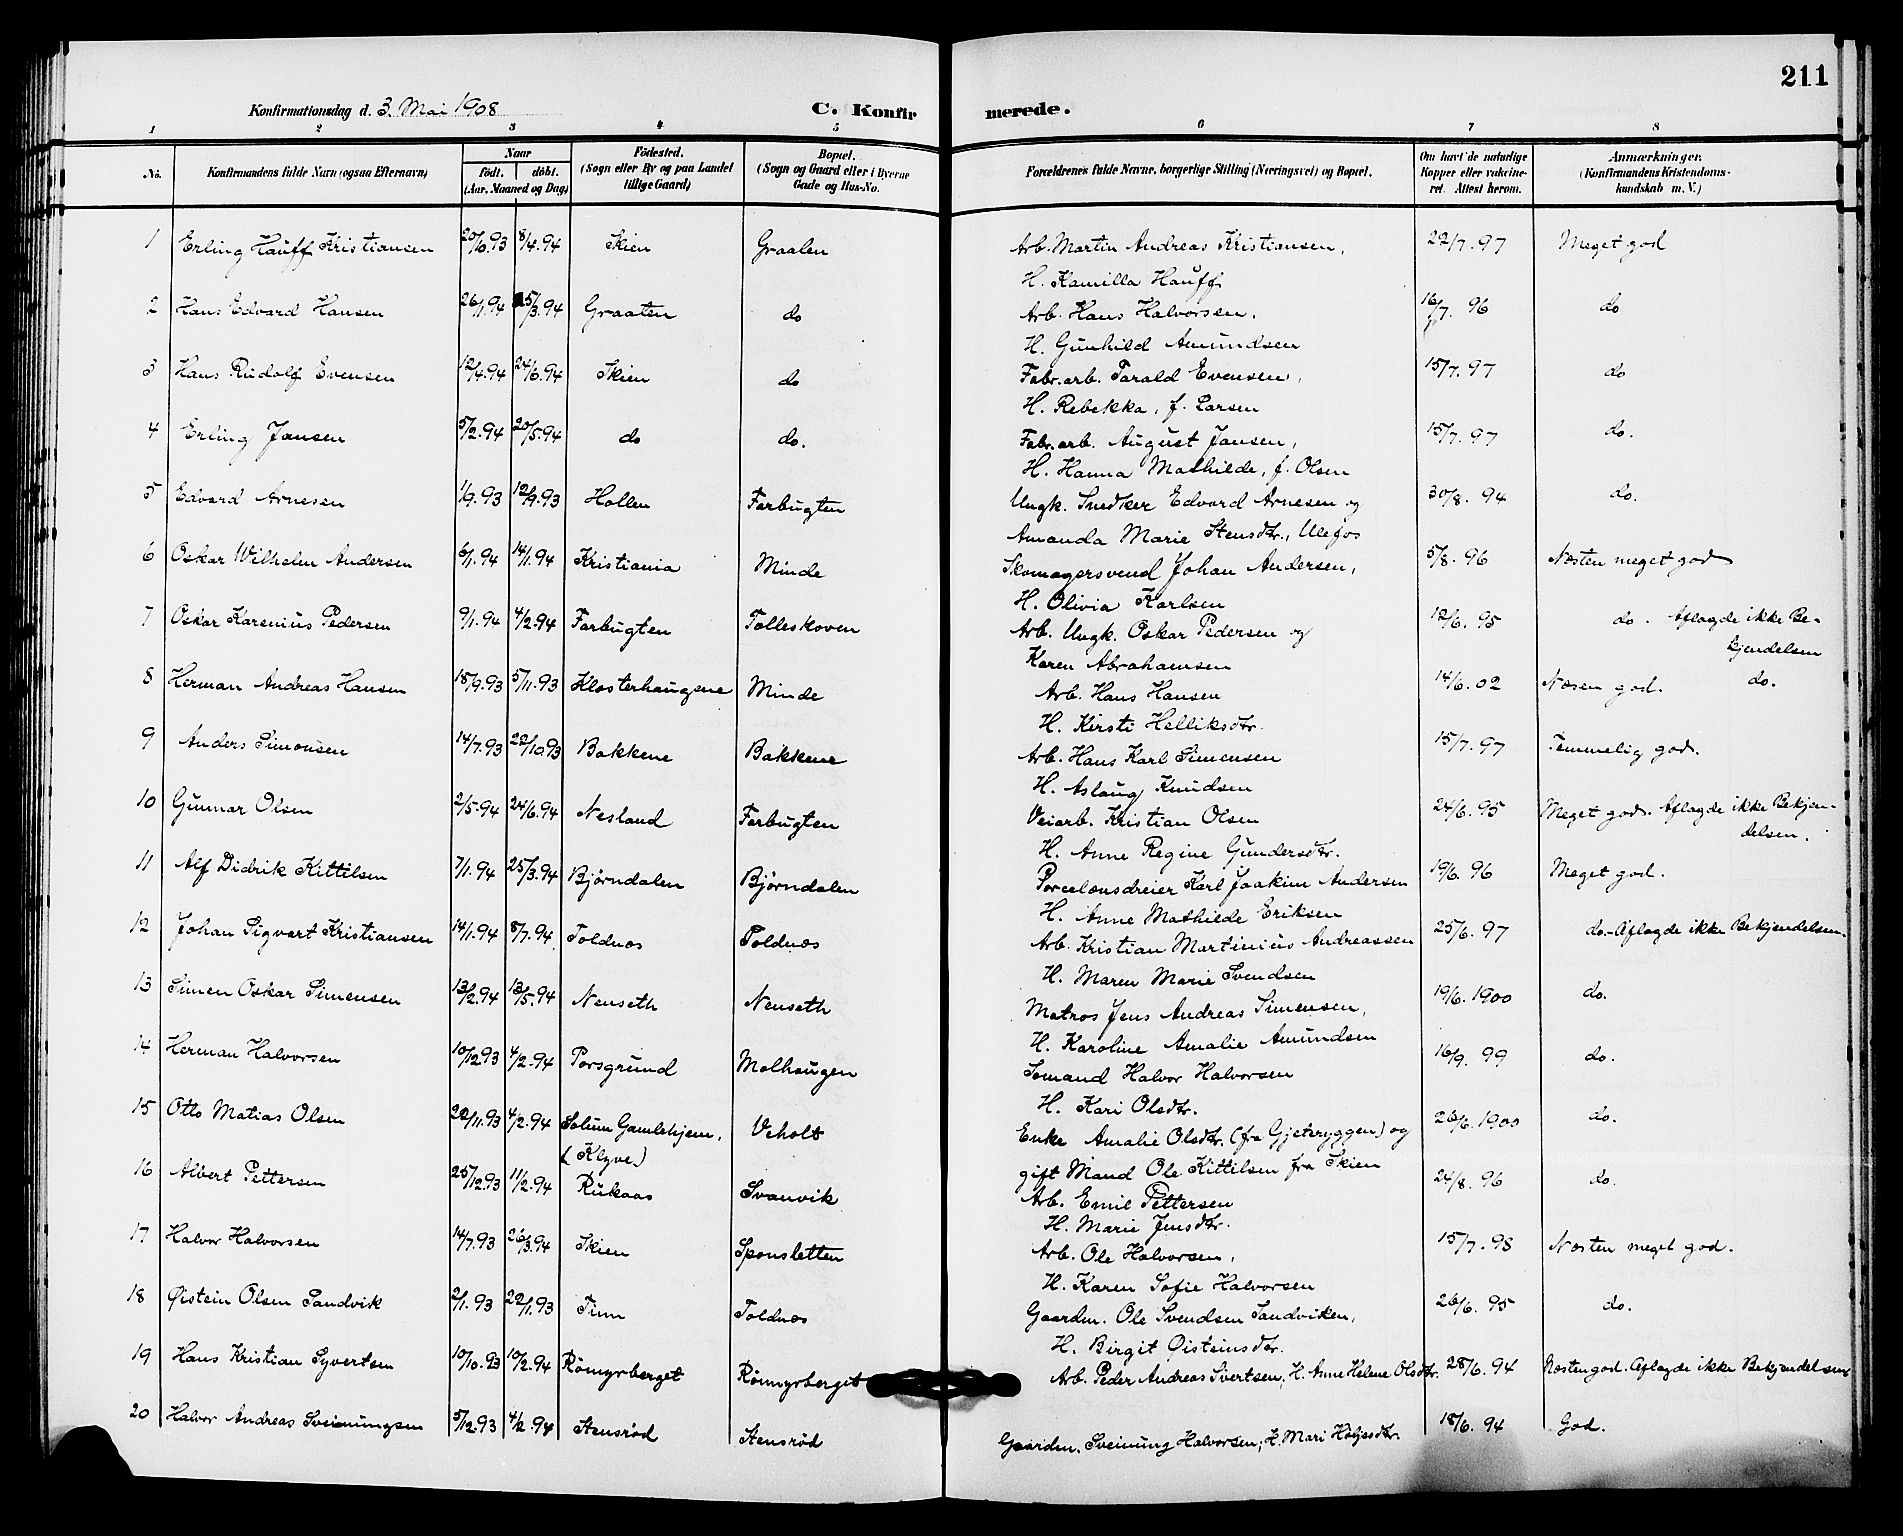 211
Konfirmationsdag d. 3. Mai 1908
C. Konfirmerede.
1 2 3 4 5 6 7 8
No. Konfirmandens fulde Navn (ogsaa Efternavn) Naar født. døbt. (Aar, Maaned og Dag) Fødested. (Sogn eller By og paa Landet tillige Gaard) Bopæl. (Sogn og Gaard eller i Byerne Gade og Hus-No. Forældrenes fulde Navne, borgerlige Stilling (Næringsvei) og Bopæl. Om havt de naturlige Kopper eller vaccineret. Attest herom. Anmærkninger. (Konfirmandens Kristendomskundskab m. V.)
1 Erling Hauff Kristiansen 20/6.93 8/4.94 Skien Graaten Arb. Martin Andreas Kristiansen, 22/7.97 Meget god
H. Kamilla Hauff
2 Hans Edvard Hansen 26/1.94 25/3.94 Graaten do Arb. Hans Halvorsen. 16/7. 96 do
H. Gunhild Amundsen
3 Hans Rudolf Evensen 12/4.94 24/6.94 Skien do Fabr.arb. Tarald Evensen, 15/7.97 do
H. Rebekka, f. Larsen
4 Erling Jansen 5/2.94 20/5.94 do do. Fabr.arb. August Jansen, 15/7.97 do.
H. Hanna Mathilde, f. Olsen
5 Edvard Arnesen 1/9.93 12/9.93 Hollen Farbugten Ungk. Snedker Edvard Arnesen og 30/8. 94 do.
Amanda Marie Stensdtr., Ulefos
6 Oskar Wilhelm Andersen 6/1.94 14/1.94 Kristiania Minde Skomagersvend Johan Andersen, 5/8. 96 Næsten meget god
H. Olivia Karlsen
7 Oskar Karenius Pedersen 9/1.94 4/2.94 Farbugten Tolleskoven Arb. Ungk. Oskar Pedersen og 12/6. 95 do. Aflagde ikke Be-
Karen Abrahamsen kjendelsen
8 Herman Andreas Hansen 18/9.93 5/11.93 Klosterhaugene Minde Arb. Hans Hansen 14/6. 02 Næsen god. do.
H. Kirsti Helliksdtr.
9 Anders Simonsen 14/7.93 22/10.93 Bakkene Bakkene Arb. Hans Karl Simensen 15/7. 97 Temmelig god.
H. Aslaug Knudsen
10 Gunnar Olsen 2/5.94 24/6.94 Nesland Farbugten Veiarb. Kristian Olsen 24/6. 95 Meget god. Aflagde ikke Bekjen-
H. Anne Regine Gundersdtr. delsen.
11 Alf Didrik Kittilsen 7/1.94 25/3.94 Bjørndalen Bjørndalen Porcelænsdreier Karl Joakim Andersen 19/6. 96 Meget god.
H. Anne Mathilde Eriksen
12 Johan Sigvart Kristiansen 14/1.94 8/7.94 Toldnes Toldnes Arb. Kristian Martinius Andreassen 25/6. 97 do. - Aflagde ikke Bekjendelsen.
H. Maren Marie Svendsen
13 Simen Oskar Simensen 13/2.94 13/5.94 Nenseth Nenseth Matros Jens Andreas Simensen, 19/6. 1900 do.
H. Karoline Amalie Amundsen
14 Herman Halvorsen 10/12.93 4/2.94 Porsgrund Molhaugen Sømand Halvor Halvorsen 16/9. 99 do.
H. Kari Olsdtr.
15 Otto Matias Olsen 22/11.93 4/2.94 Solum Gamlehjem, Veholt Enke Amalie Olsdtr. (fra Gjeteryggen) og 26/6.1900 do.
(Klyve) gift Mand Ole Kittilsen fra Skien
16 Albert Pettersen 25/12.93 11/2.94 Rukaas Svanvik Arb. Emil Pettersen 24/8. 96 do.
H. Marie Jensdtr.
17 Halvor Halvorsen 14/7.93 26/3.94 Skien Sponsletten Arb. Ole Halvorsen, 15/7. 98 Næsten meget god.
H. Karen Sofie Halvorsen
18 Øistein Olsen Sandvik 2/1.93 22/1.93 Tinn Toldnes Gaardm. Ole Svendsen Sandviken, 26/6. 95 do.
H. Birgit Øisteinsdtr.
19 Hans Kristian Syvertsen 10/10.93 10/2.94 Rømyrberget Rømyrberget Arb. Peder Andreas Sivertsen, H. Anne Helene Olsdtr. 28/6. 94 Næsten god. Aflagde ikke Bekjendelsen
20 Halvor Andreas Sveinungsen 5/12.93 4/2.94 Stensrød Stensrød Gaardm. Sveinung Halvorsen, H. Mari Holjesdtr. 18/6. 94 God.